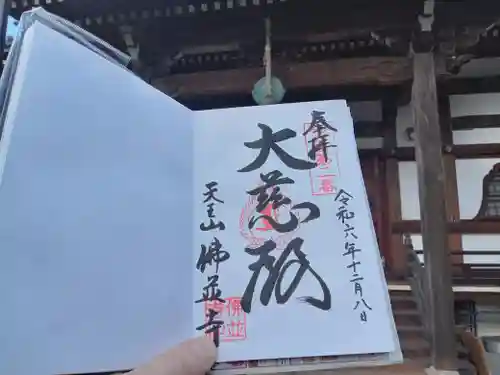 奉拝
令和六年十二月八日
大慈殿
天王山 佛並寺